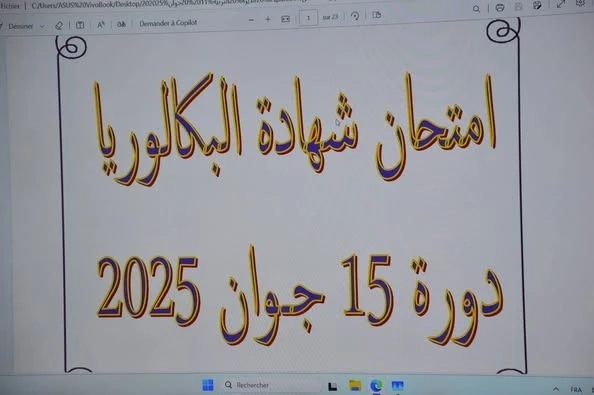 Fichier
C:/Users/ASUS%20VivoBook/Desktop/202025%
Dessiner
Demander à Copilot
1 sur 23
امتحان شهادة البكالوريا
دورة 15 جوان 2025
Rechercher
FRA